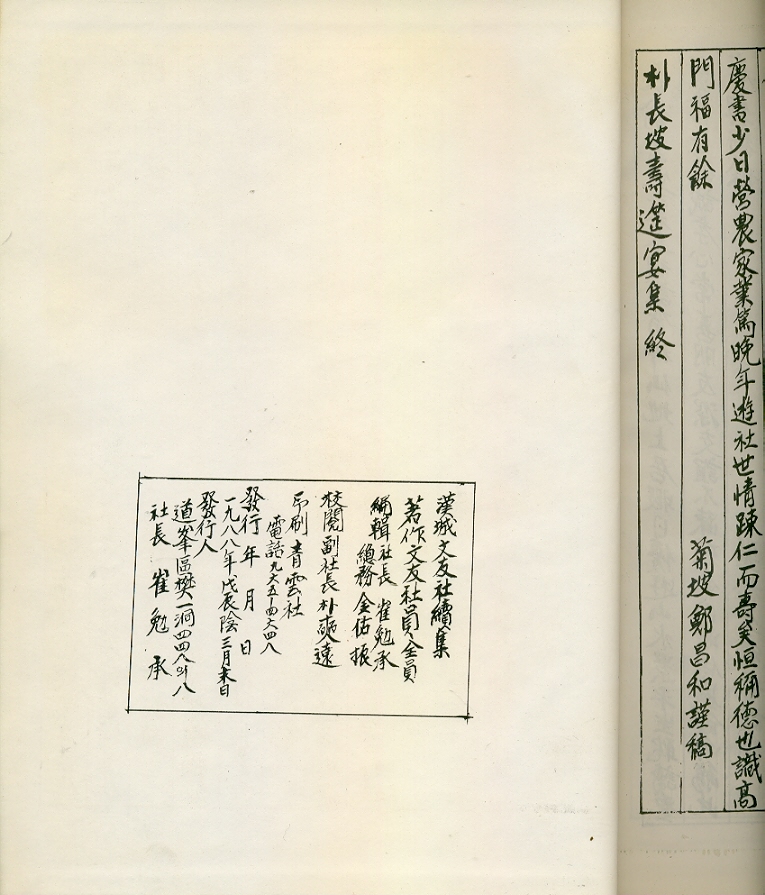 慶書少日營農家業篤晚年遊社世情踈仁而壽矣恒稱德也識高
門福有餘
菊坡鄭昌和謹稿
朴長坡壽筵宴集 終
漢城文友社續集
著作文友社員全員
編輯社長 崔勉承
總務 金佑振
校閱副社長朴爽遠
印刷 青雲社
電話九六五-四六四八
發行年月日
一九八八年戊辰陰三月末日
發行人
道峯區樊一洞四四八의八
社長 崔勉承